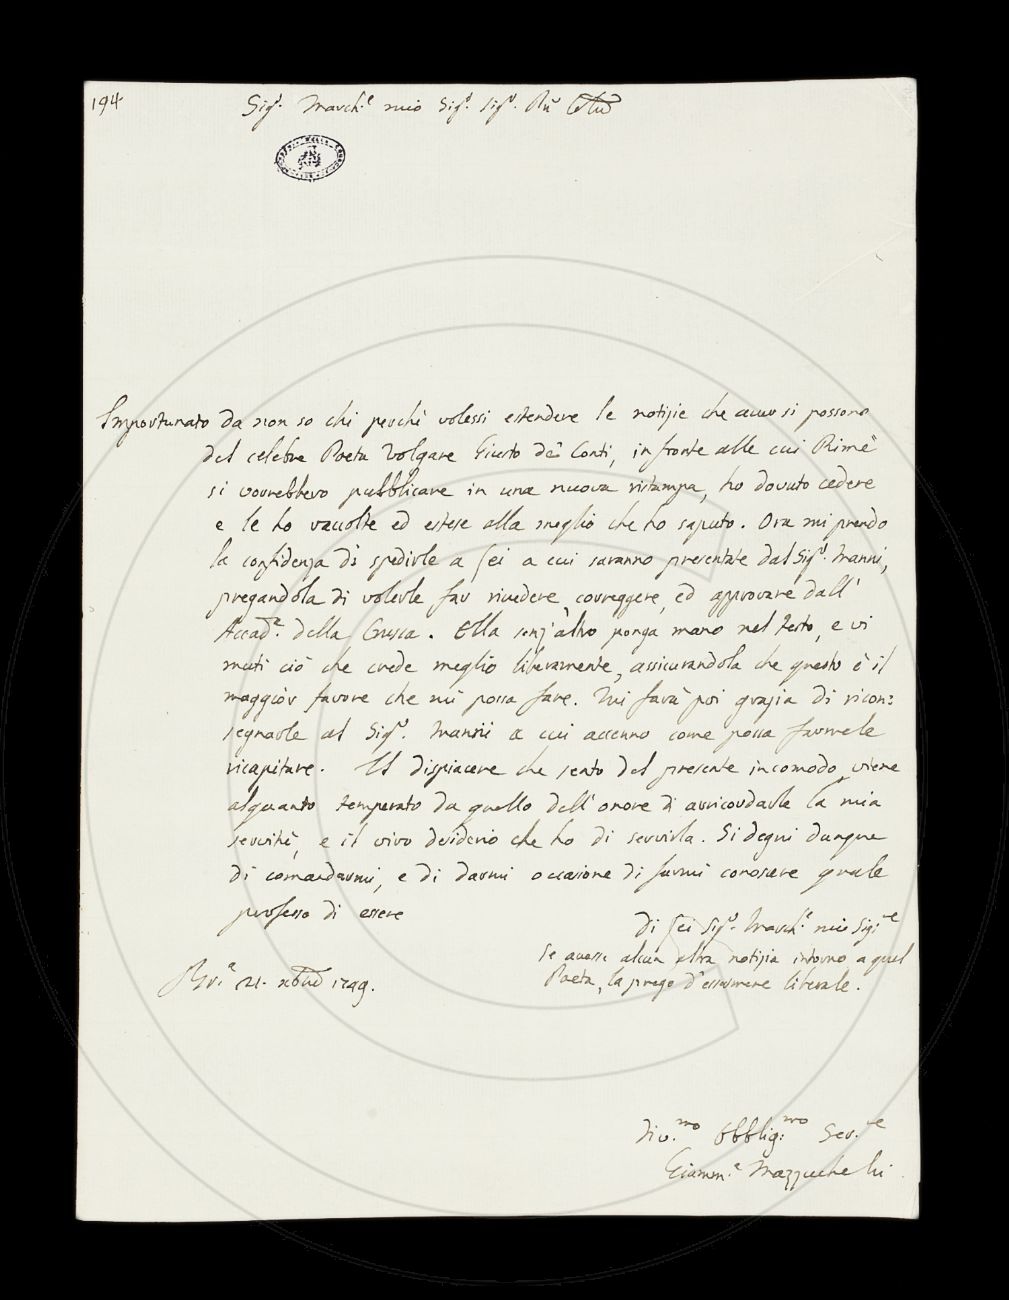 194
Sig.r March.e mio Sig.r Sig.r
Importunato da non so chi perchè volessi estendere le notizie che aver si possono
del celebre Poeta Volgare Giusto de' Conti, in fronte alle cui Rime
si vorrebbero pubblicare in una nuova ristampa, ho dovuto cedere
e le ho raccolte ed estese alla meglio che ho saputo. Ora mi prendo
la confidenza di spedirle a Lei a cui saranno presentate dal Sig.r Manni,
pregandola di volerle far rivedere, correggere, ed approvare dall'
Accad.a della Crusca. Ella senz'altro ponga mano nel testo, e vi
muti ciò che crede meglio liberamente, assicurandola che questo è il
maggior favore che mi possa fare. Mi farà poi grazia di ricon=
segnarle al Sig.r Manni a cui accenno come possa farmele
ricapitare. Il dispiacere che sento del presente incomodo viene
alquanto temperato da quello dell'onore di arricordarle la mia
servitù, e il vivo desiderio che ho di servirla. Si degni dunque
di comandarmi, e di darmi occasione di farmi conoscere quale
professo di essere
Di Lei Sig.r March.e mio Sig.re
Se avesse alcun altra notizia intorno a quel
Poeta, la prego d'essermene liberale.
Br.a 21. 1749.
Div.mo Obblig.mo Ser.re
Giamm.a Mazzuchelli